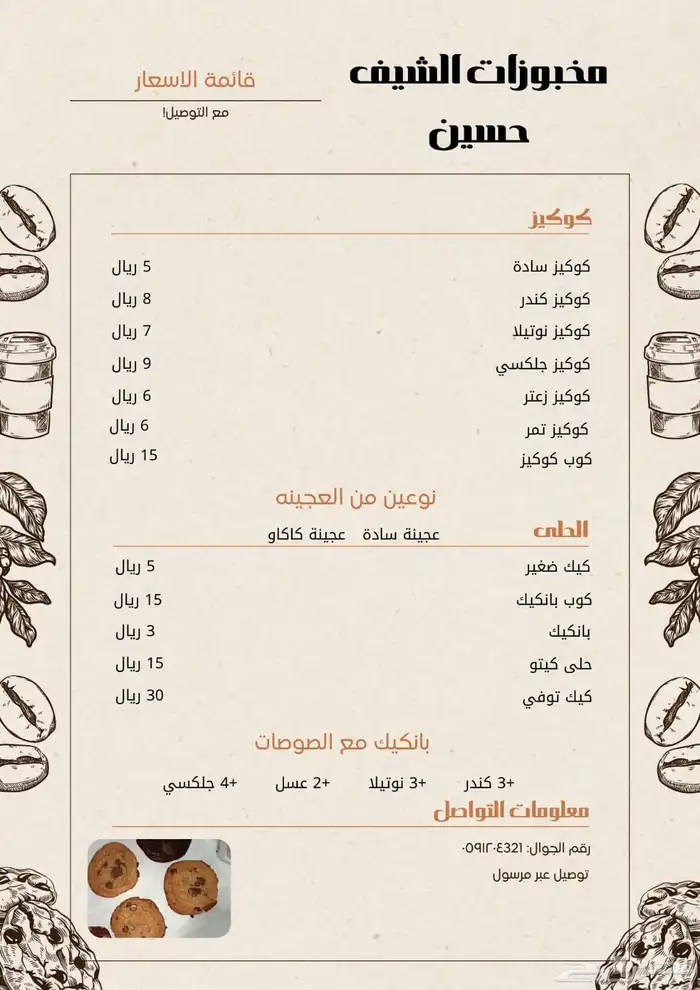 مخبوزات الشيف
حسين
قائمة الاسعار
مع التوصيل!
كوكيز
كوكيز سادة 5 ريال
كوكيز كندر 8 ريال
كوكيز نوتيلا 7 ريال
كوكيز جلكسي 9 ريال
كوكيز زعتر 6 ريال
كوكيز تمر 6 ريال
كوب كوكيز 15 ريال
نوعين من العجينه
الحلى
عجينة سادة عجينة كاكاو
كيك ضغير 5 ريال
كوب بانكيك 15 ريال
بانكيك 3 ريال
حلى كيتو 15 ريال
كيك توفي 30 ريال
بانكيك مع الصوصات
+3 كندر +3 نوتيلا +2 عسل +4 جلكسي
معلومات التواصل
رقم الجوال: ٠٥٩١٢٠٤٣٢١
توصيل عبر مرسول